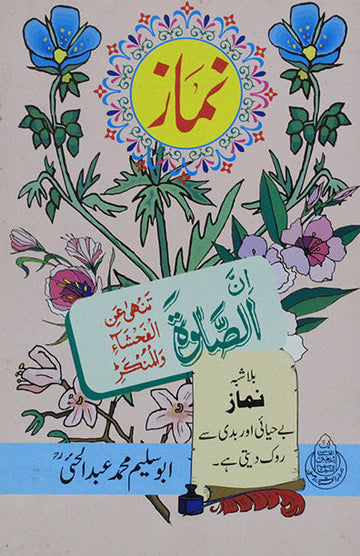 نماز
اِنَّ
الصَّلوٰةَ
تَنْهٰى عَنِ
الْفَحْشَآءِ
وَالْمُنْكَرِ
بلا شبہ
نماز
بے حیائی اور بدی سے
روک دیتی ہے۔
ابو سلیم محمد عبدالحئیؒ